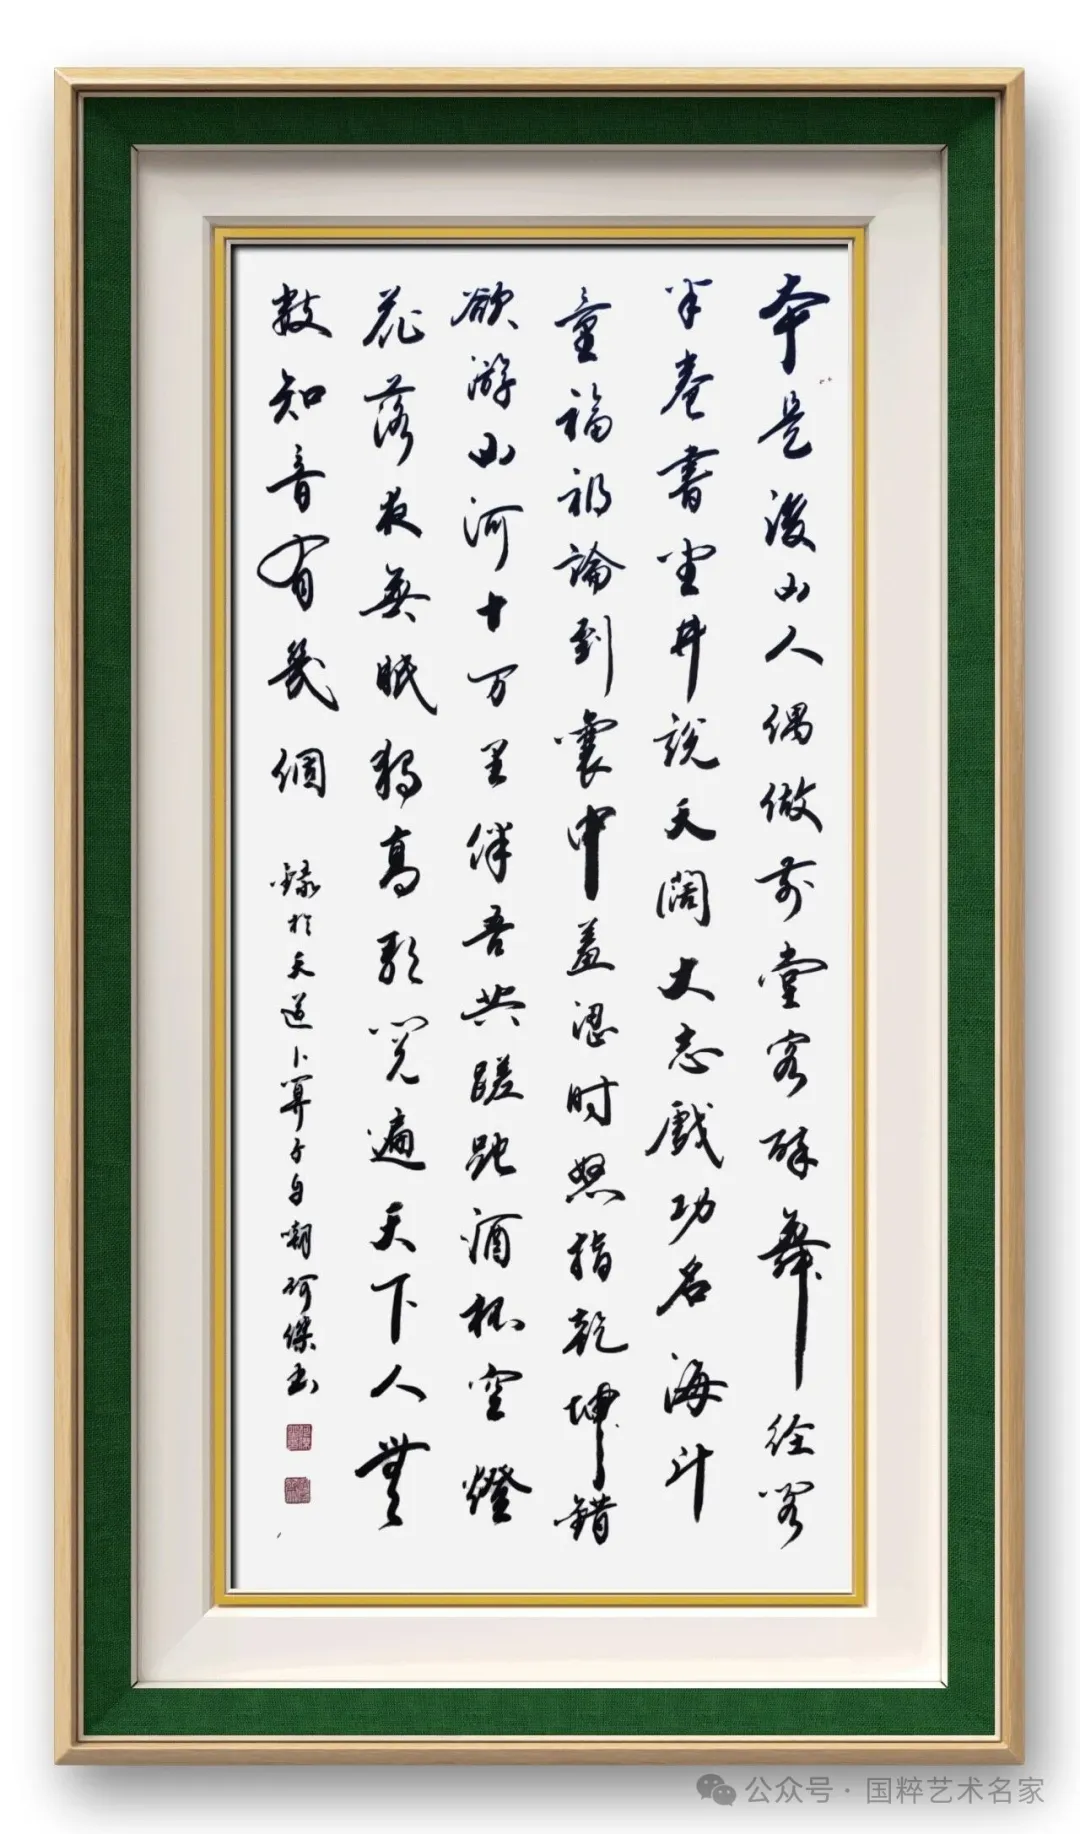 本是後山人偶做前堂客醉舞经阁
半卷書坐井説天阔大志戲功名海斗
量福祸論到囊中羞涩时怒指乾坤錯
欲游山河十万里伴吾共蹉跎酒杯空燈
花落夜無眠独高歌览遍天下人無
数知音有幾個
錄於天道卜算子自嘲 傑书
公众号 · 国粹艺术名家